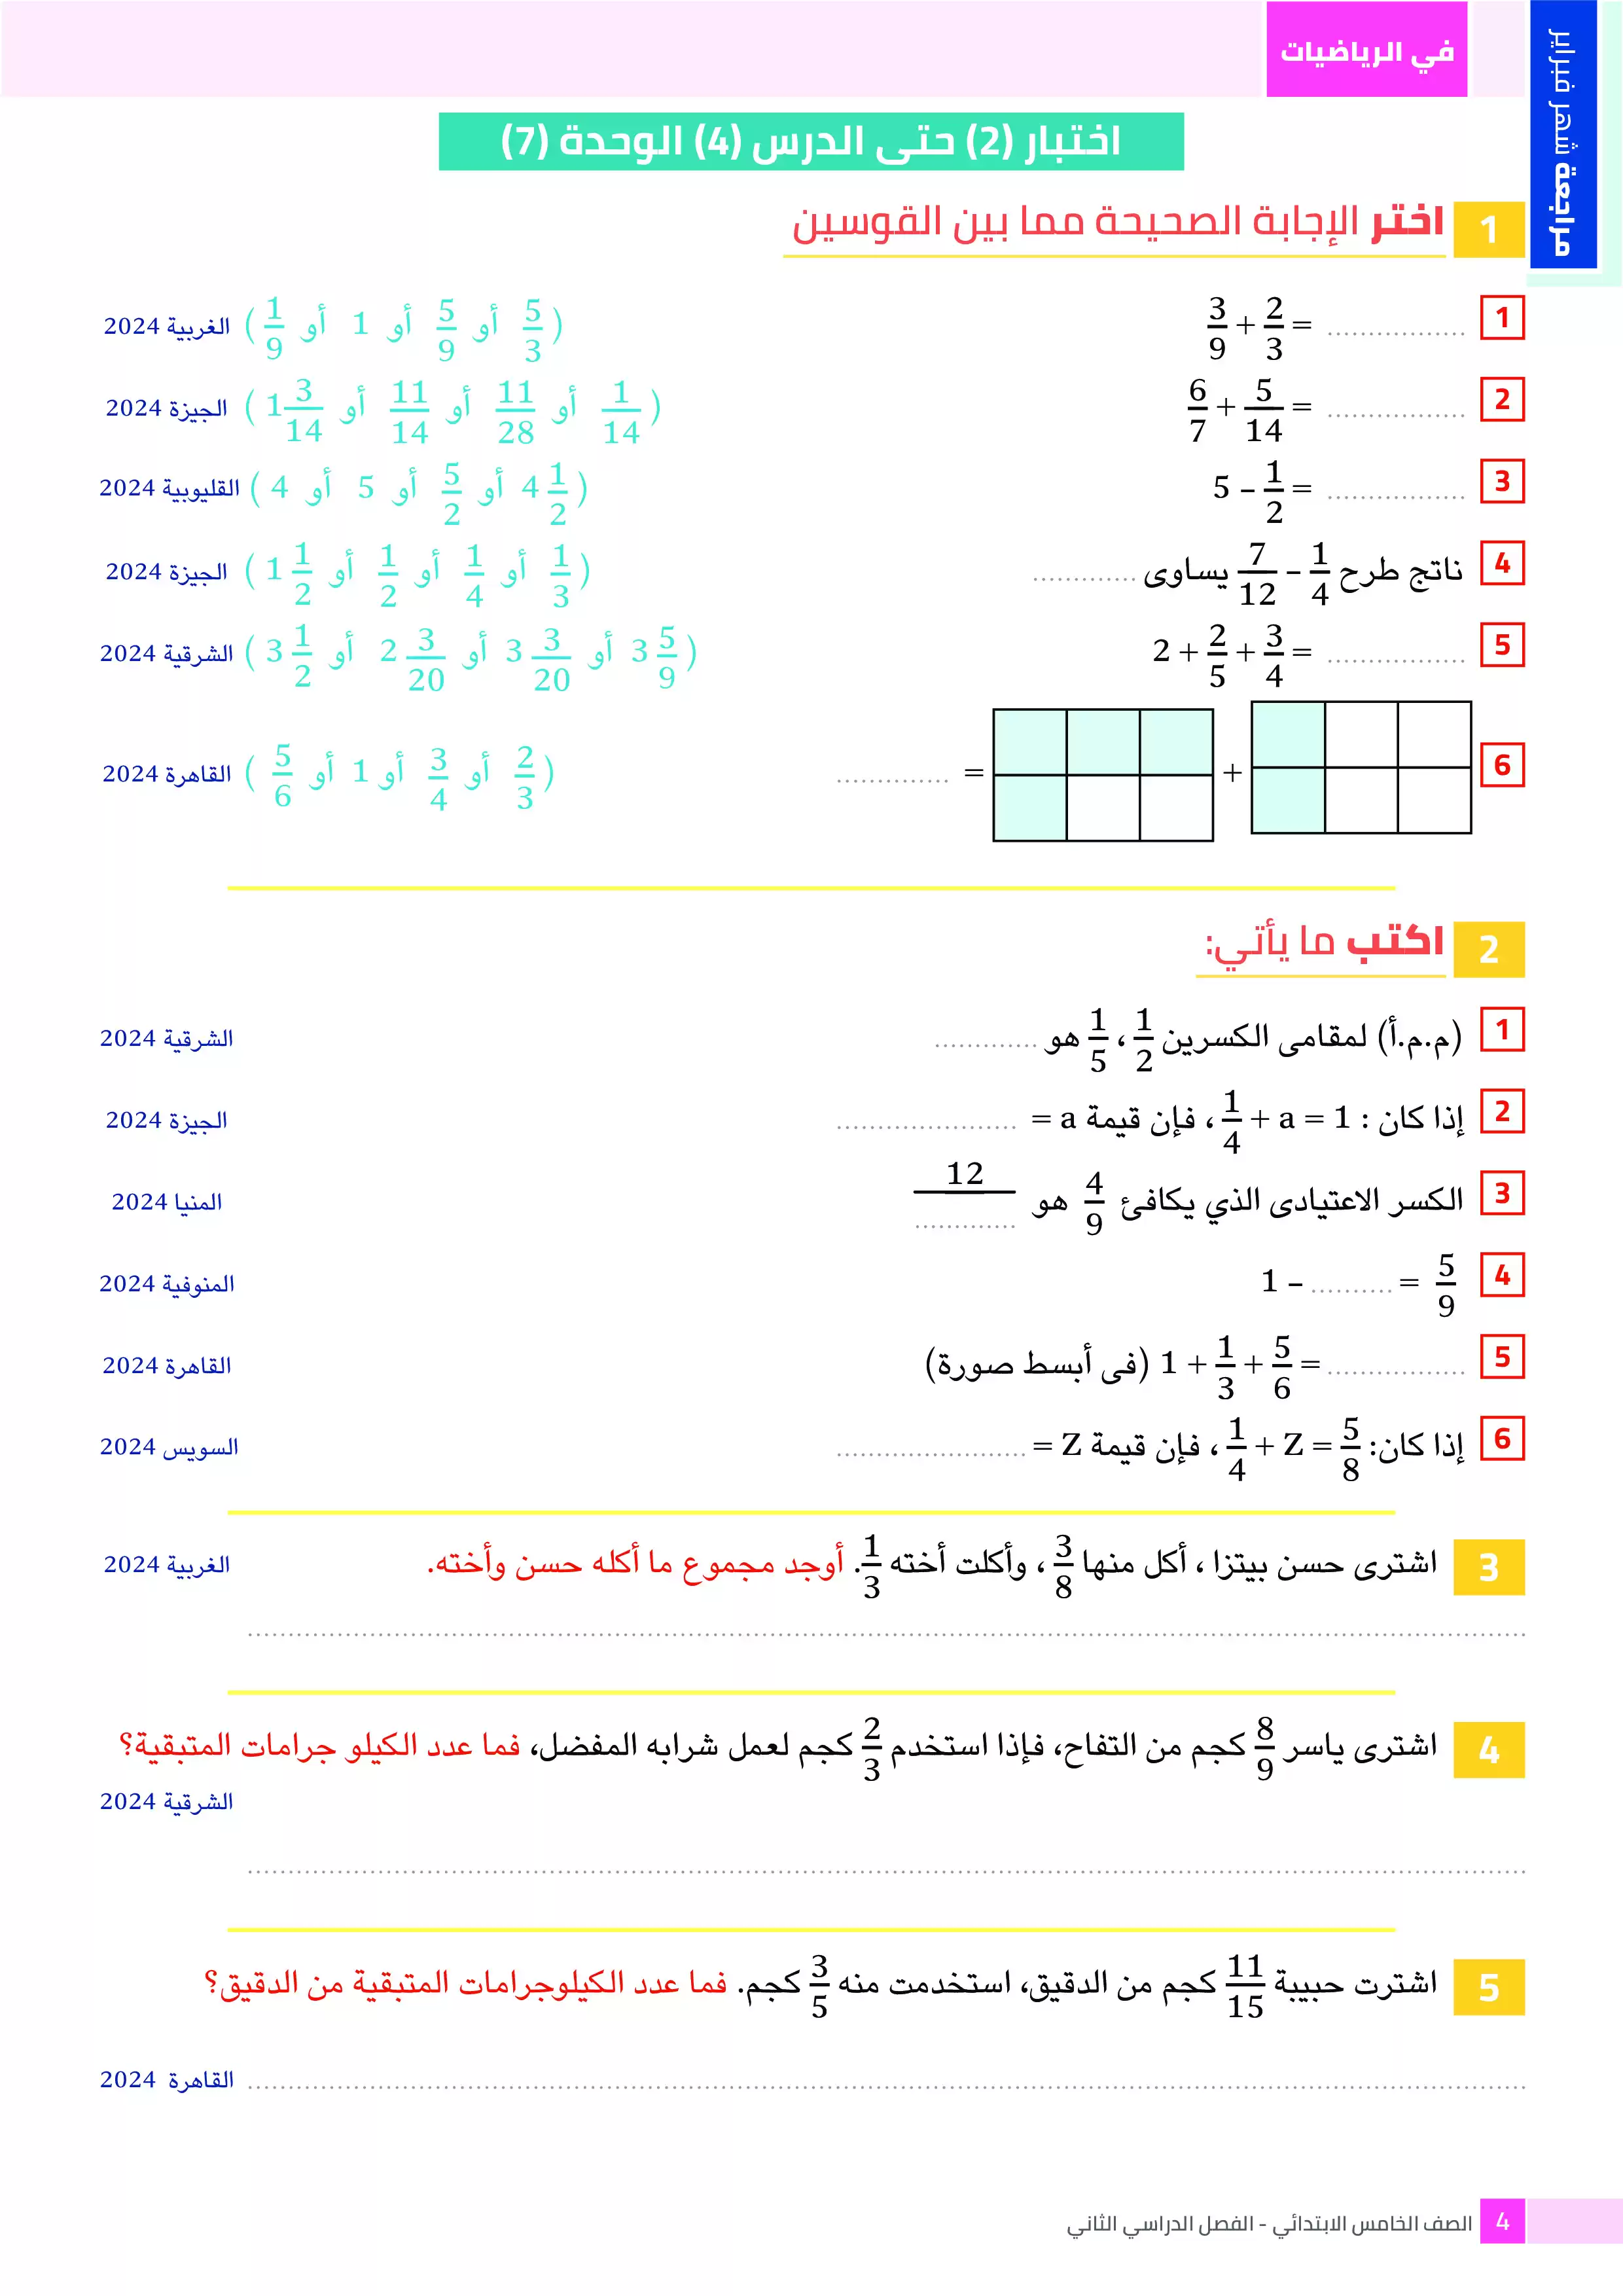 في الرياضيات
مراجعة شهر فبراير
اختبار (2) حتى الدرس (4) الوحدة (7)
1 اختر الإجابة الصحيحة مما بين القوسين
1 3/9 + 2/3 = ................. ( 5/3 أو 5/9 أو 1 أو 1/9 ) الغربية 2024
2 6/7 + 5/14 = ................. ( 1/14 أو 11/28 أو 11/14 أو 1 3/14 ) الجيزة 2024
3 5 - 1/2 = ................. ( 4 1/2 أو 5/2 أو 5 أو 4 ) القليوبية 2024
4 ناتج طرح 7/12 - 1/4 يساوى ............. ( 1/3 أو 1/4 أو 1/2 أو 1 1/2 ) الجيزة 2024
5 2 + 2/5 + 3/4 = ................. ( 3 5/9 أو 3 3/20 أو 2 3/20 أو 3 1/2 ) الشرقية 2024
6 + = .............. ( 2/3 أو 3/4 أو 1 أو 5/6 ) القاهرة 2024
2 اكتب ما يأتي:
1 (م.م.أ) لمقامى الكسرين 1/2 ، 1/5 هو ............. الشرقية 2024
2 إذا كان : 1/4 + a = 1 ، فإن قيمة a = ....................... الجيزة 2024
3 الكسر الاعتيادى الذي يكافئ 4/9 هو 12/............. المنيا 2024
4 1 - .......... = 5/9 المنوفية 2024
5 1 + 1/3 + 5/6 = ................. (فى أبسط صورة) القاهرة 2024
6 إذا كان: 1/4 + Z = 5/8 ، فإن قيمة Z = ........................ السويس 2024
3 اشترى حسن بيتزا ، أكل منها 3/8 ، وأكلت أخته 1/3. أوجد مجموع ما أكله حسن وأخته. الغربية 2024
4 اشترى ياسر 8/9 كجم من التفاح، فإذا استخدم 2/3 كجم لعمل شرابه المفضل، فما عدد الكيلو جرامات المتبقية؟
الشرقية 2024
5 اشترت حبيبة 11/15 كجم من الدقيق، استخدمت منه 3/5 كجم. فما عدد الكيلوجرامات المتبقية من الدقيق؟
القاهرة 2024
4 الصف الخامس الابتدائي - الفصل الدراسي الثاني